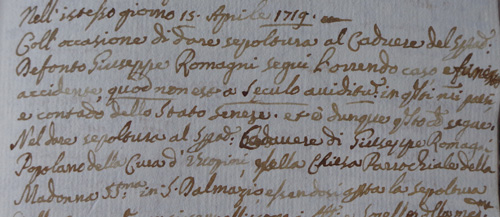 Nell'istesso giorno 15. Aprile 1719.
Coll'occasione di dare sepoltura al Cadvere del Spad.
Defonto Giuseppe Romagni seguì l'orrendo caso e funesto
accidense quod non est a seculo auditu. in qsti nri paesi
e contado dello Stato Senese. et è dunque qsto cd. segue.
Nel dare sepoltura al Spad. Cadavere di Giuseppe Romagni
Popolano della Cura d' nella Chiesa Parrochiale della
Madonna SSma. in S. Dalmazio essendosi la sepoltura